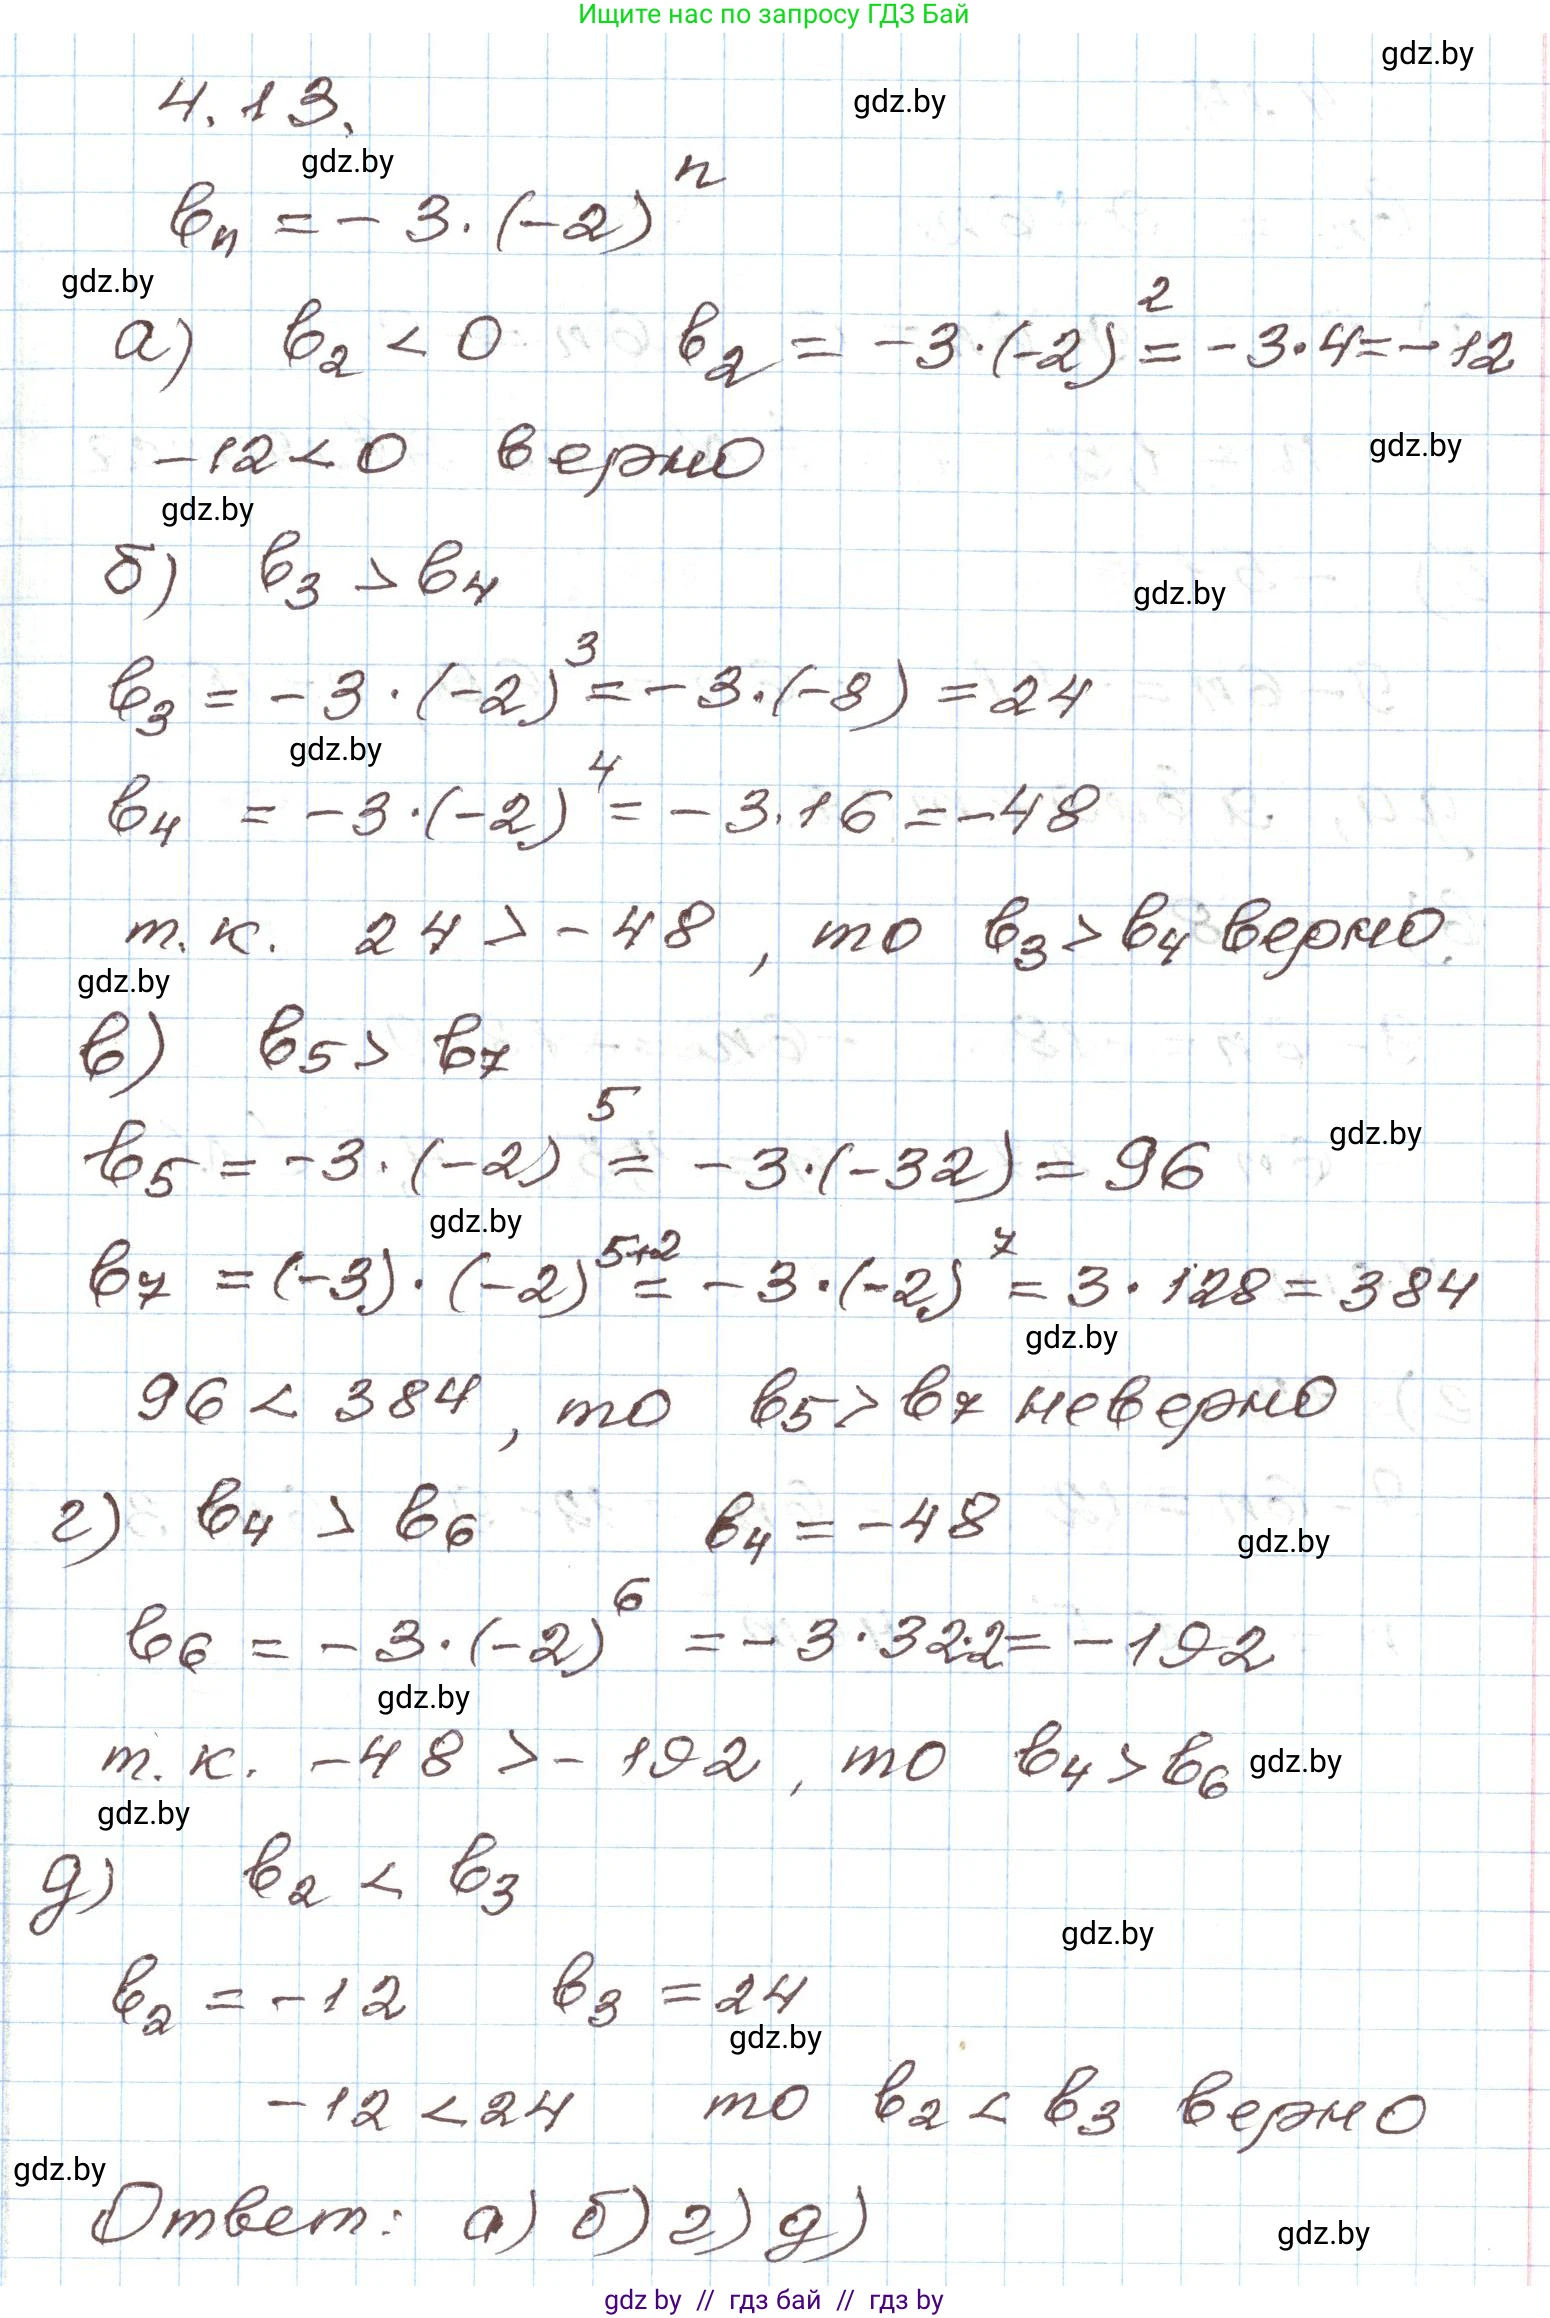 Ищите нас по запросу ГДЗ Бай
gdz.by
4.13.
gdz.by
gdz.by
bₙ = - 3 · (-2)ⁿ
gdz.by
а) b₂ < 0 b₂ = -3·(-2)² = -3·4=-12
-12<0 верно
gdz.by
gdz.by
б) b₃ > b₄
gdz.by
b₃ = -3·(-2)³ = -3·(-8) = 24
gdz.by
b₄ = -3·(-2)⁴ = -3·16 = -48
т.к. 24 > -48, то b₃ > b₄ верно.
gdz.by
в) b₅ > b₇
gdz.by
b₅ = -3·(-2)⁵ = -3·(-32) = 96
gdz.by
b₇ = (-3)·(-2)⁵⁺² = -3·(-2)⁷ = 3·128 = 384
gdz.by
96 < 384, то b₅ > b₇ неверно
г) b₄ > b₆ b₄ = -48
gdz.by
b₆ = -3·(-2)⁶ = -3·32·2= -192
gdz.by
т.к. -48 > -192, то b₄ > b₆
gdz.by
gdz.by
д) b₂ < b₃
gdz.by
b₂ = -12 b₃ = 24
gdz.by
-12 < 24 то b₂ < b₃ верно
gdz.by
Ответ: а) б) г) д)
gdz.by
gdz by // гдз бай // гдз by